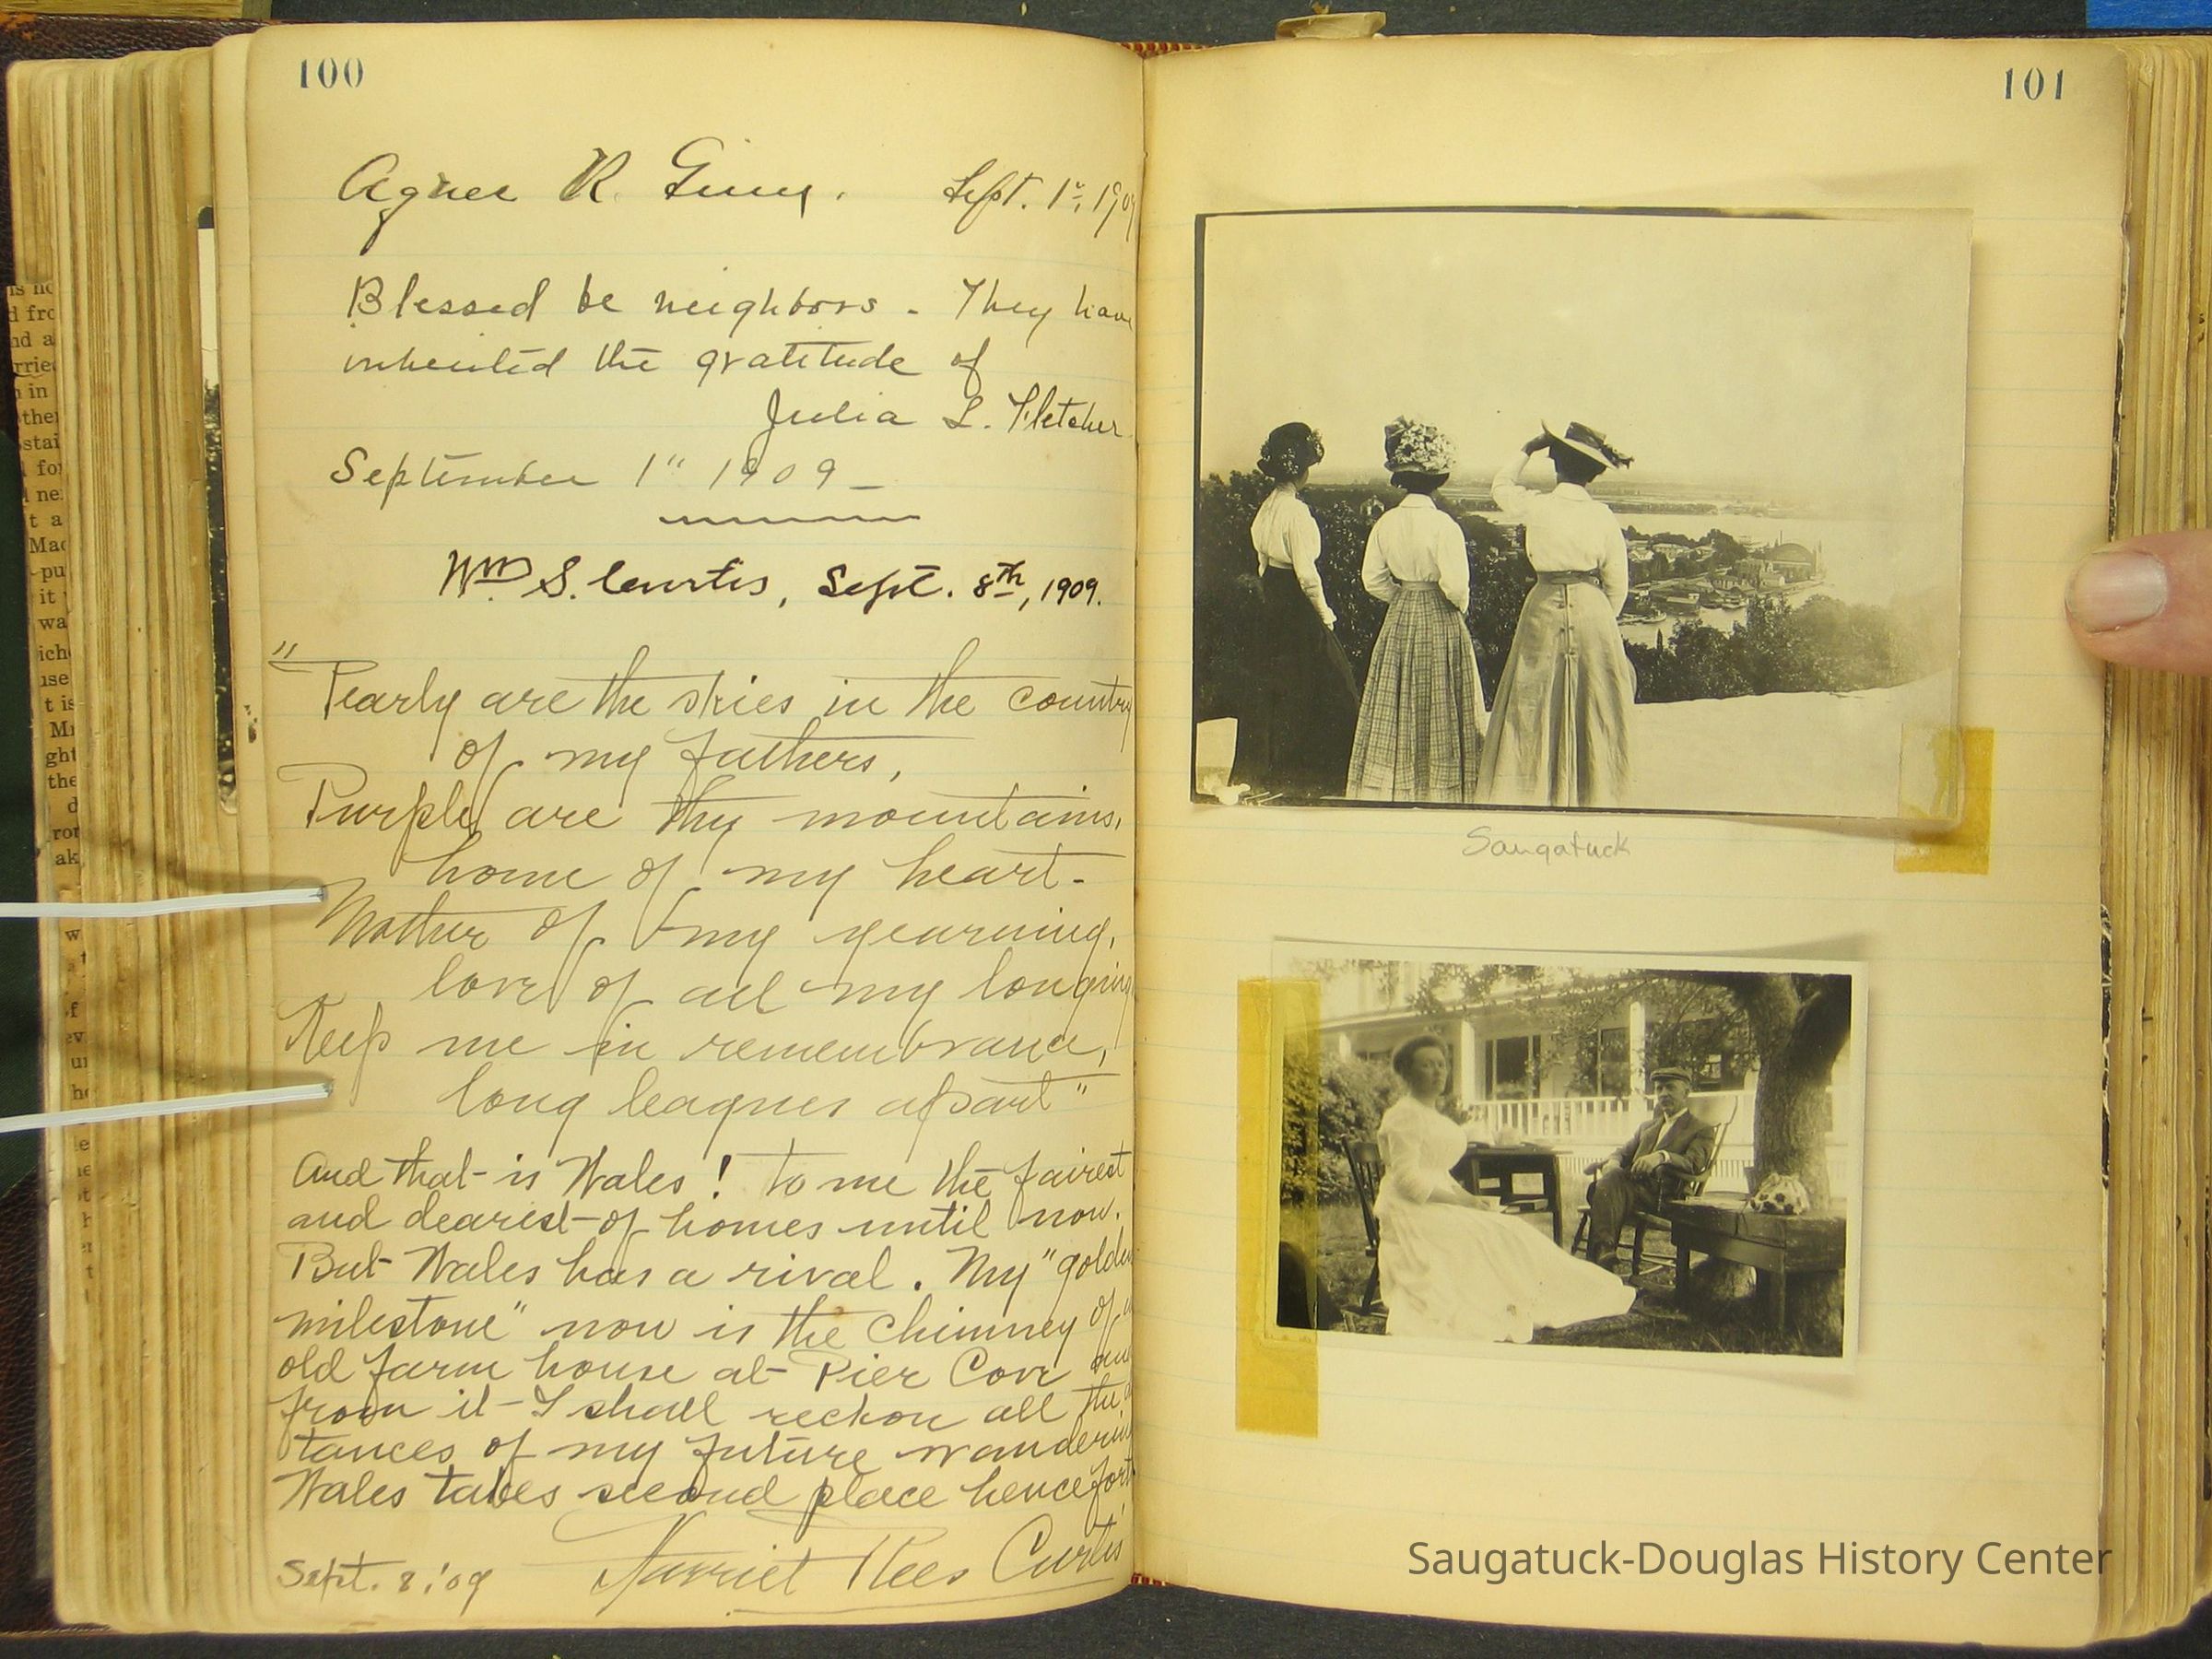 100
Agnes R. Sept. 1st, 190
Blessed be neighbors - They have
inherited the gratitude of
Julia L. Fletcher
September 1" 1909 -
Wm S. Curtis, Sept. 8th, 1909.
"Pearly are the skies in the country
of my fathers,
Purple are thy mountains,
home of my heart-
Mother of my yearning,
love of all my longing
Keep me in remembrance,
long leagues apart"
And that is Wales! To me the fairest
and dearest of homes until now.
But Wales has a rival. My "golden
milestone" now is the chimney of
old farm house at Pier Cove
from it I shall reckon all the
tances of my future wanderin
Wales takes second place henceforth
Sept. 8, '09 Harriet Rees Curtis
101
Saugatuck
Saugatuck-Douglas History Center